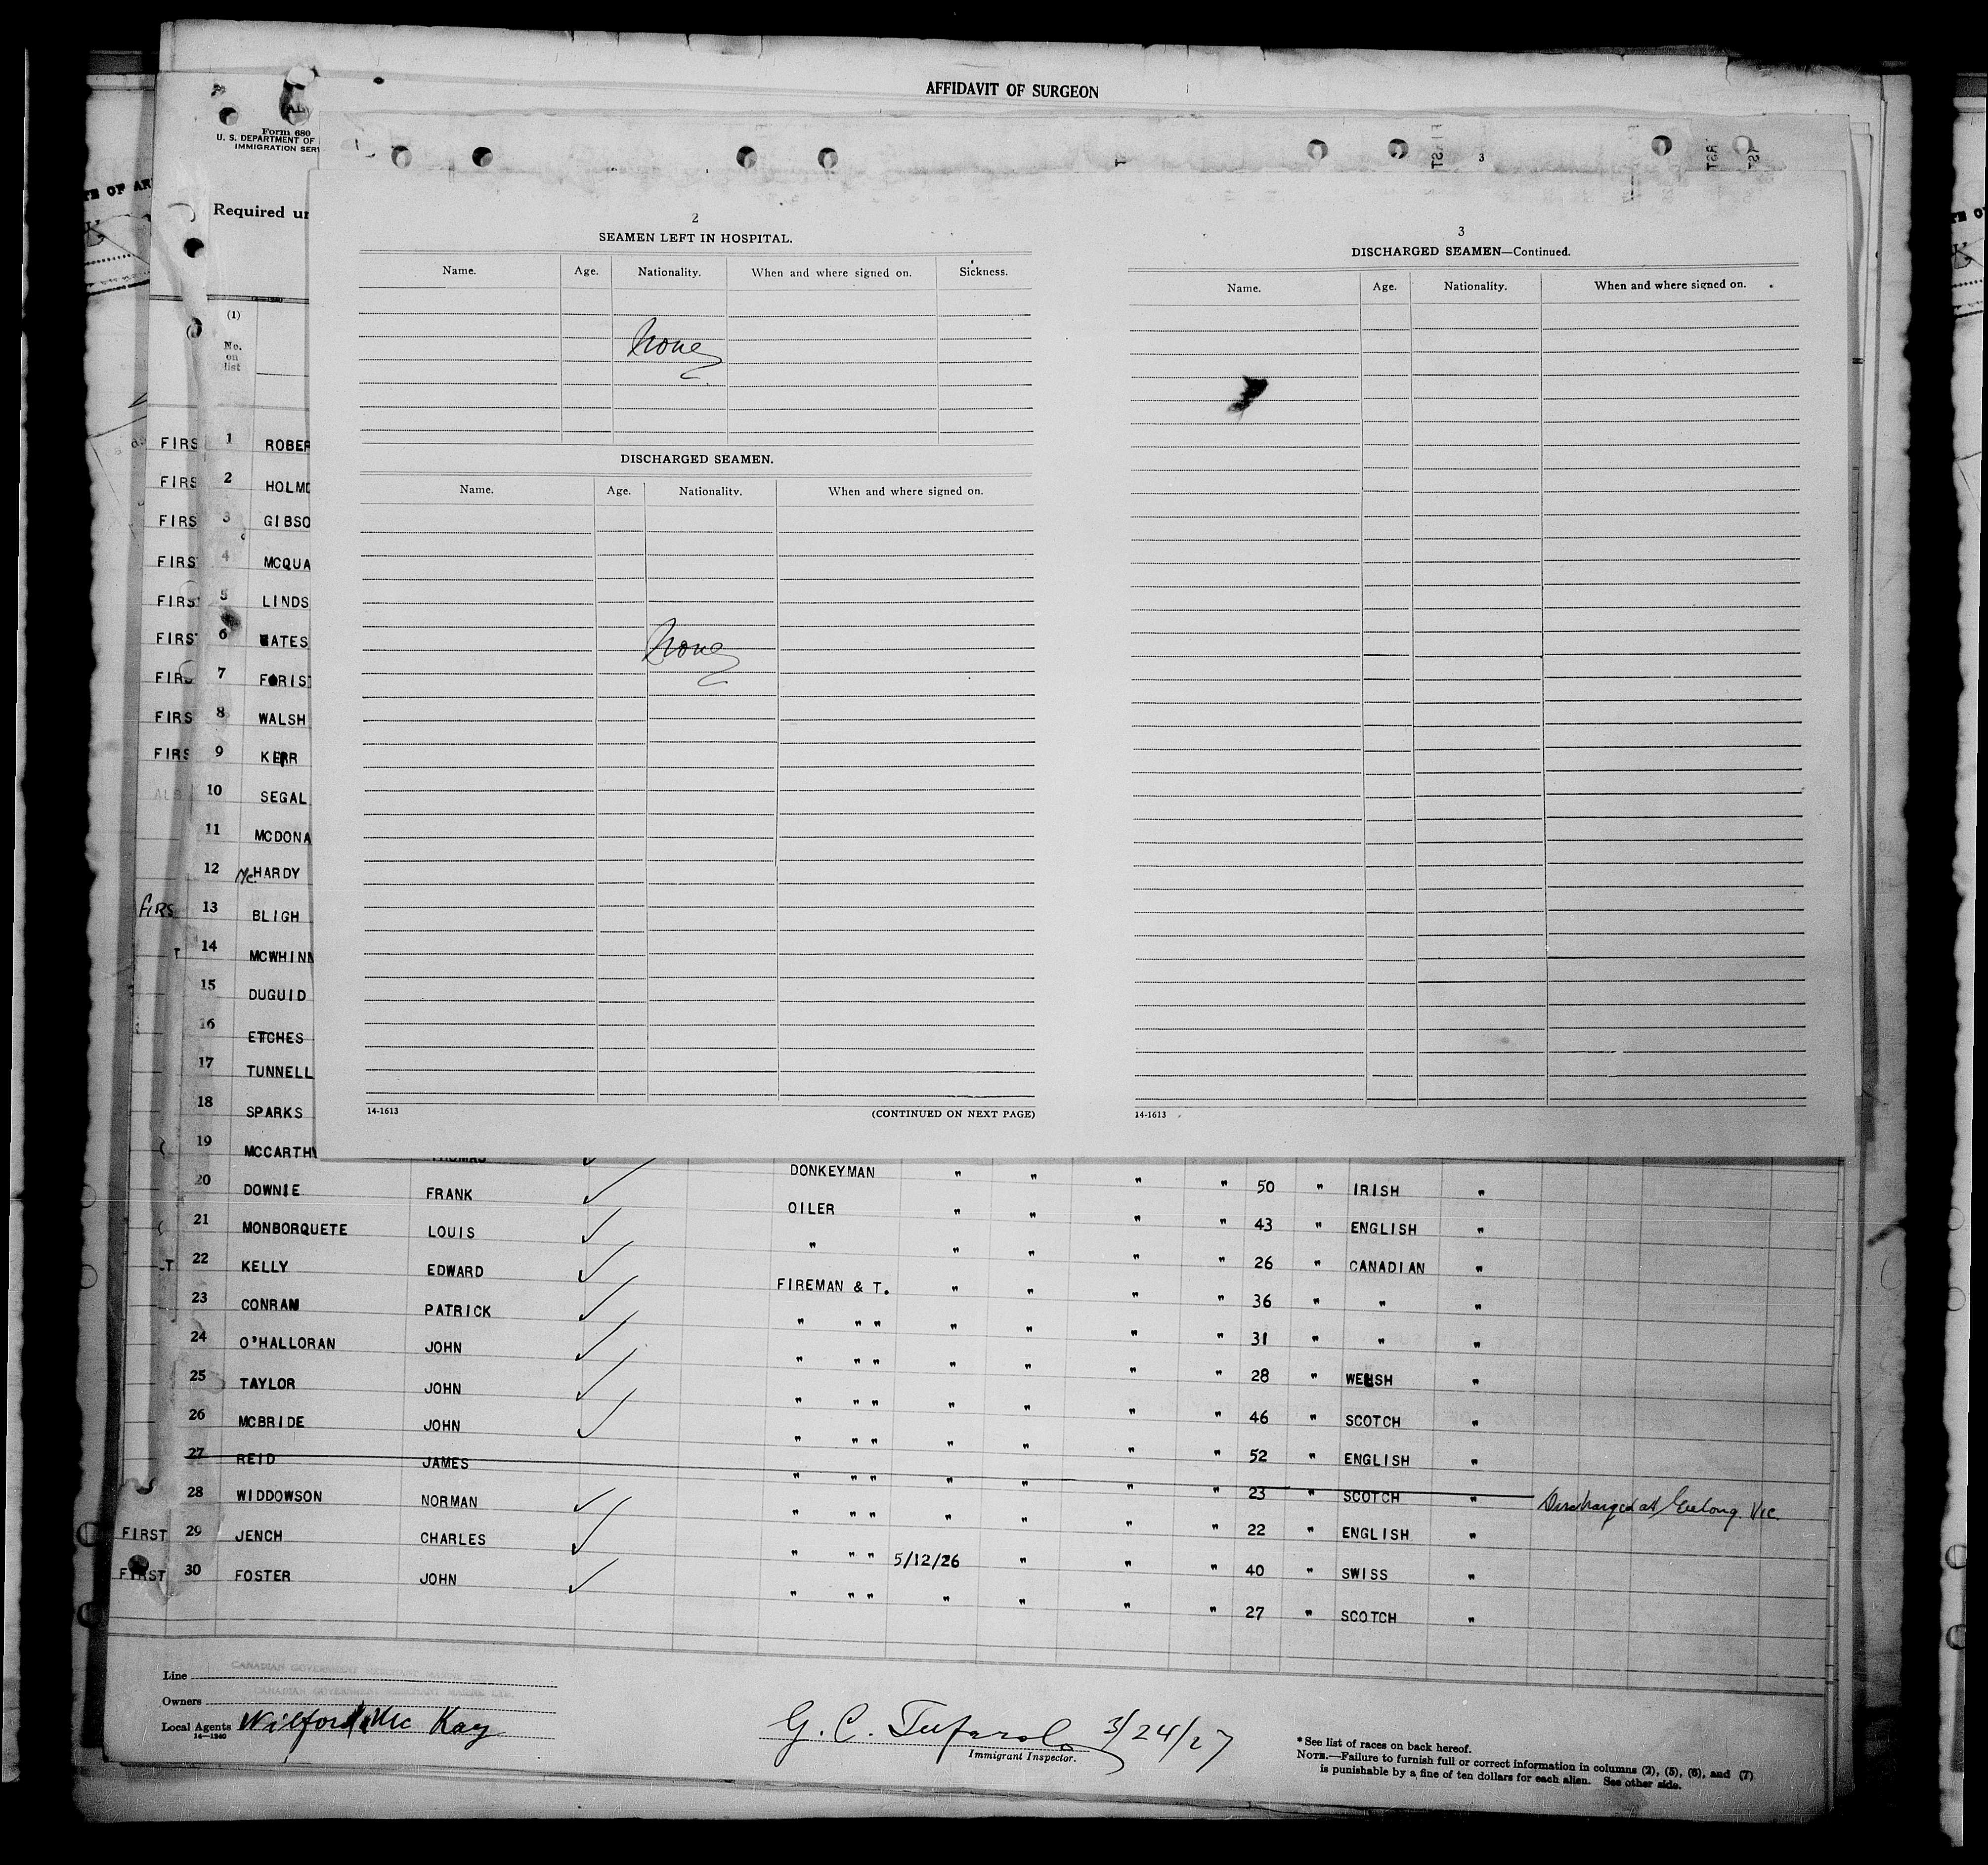 AFFIDAVIT OF SURGEON
Form 680
U. S. DEPARTMENT OF
IMMIGRATION SER
Required un
(1)
No.
on
list
2
SEAMEN LEFT IN HOSPITAL.
Name. Age. Nationality. When and where signed on. Sickness.
None
DISCHARGED SEAMEN.
Name. Age. Nationality. When and where signed on.
None
14-1613 (CONTINUED ON NEXT PAGE)
3
DISCHARGED SEAMEN—Continued.
Name. Age. Nationality. When and where signed on.
14-1613
FIRS 1 ROBER
FIRS 2 HOLM
FIRS 3 GIBSO
FIRS 4 MCQUA
FIRS 5 LINDS
FIRS 6 ATES
FIRS 7 F RIS
FIRS 8 WALSH
FIRS 9 KERR
10 SEGAL
11 MCDONA
12 Mc HARDY
FIRS 13 BLIGH
T 14 MCWHINN
15 DUGUID
16 ETCHES
17 TUNNELL
18 SPARKS
19 MCCARTHY THOMAS DONKEYMAN " " " " 50 " IRISH "
20 DOWNIE FRANK OILER " " " " 43 " ENGLISH "
21 MONBORQUETE LOUIS " " " " " 26 " CANADIAN "
22 KELLY EDWARD FIREMAN & T. " " " " 36 " " "
23 CONRAN PATRICK " " " " " " " 31 " " "
24 O'HALLORAN JOHN " " " " " " " 28 " WELSH "
25 TAYLOR JOHN " " " " " " " 46 " SCOTCH "
26 MCBRIDE JOHN " " " " " " " 52 " ENGLISH "
27 REID JAMES " " " " " " " 23 " SCOTCH " Discharged at Geelong. Vic.
28 WIDDOWSON NORMAN " " " " " " " 22 " ENGLISH "
FIRST 29 JENCH CHARLES " " " 5/12/26 " " " 40 " SWISS "
FIRST 30 FOSTER JOHN " " " " " " " 27 " SCOTCH "
Line CANADIAN GOVERNMENT MERCHANT MARINE LTD.
Owners CANADIAN GOVERNMENT MERCHANT MARINE LTD.
Local Agents Wilford Mc Kay
14—1240
G. C. 3/24/27
Immigrant Inspector.
* See list of races on back hereof.
NOTE.—Failure to furnish full or correct information in columns (2), (5), (6), and (7)
is punishable by a fine of ten dollars for each alien. See other side.